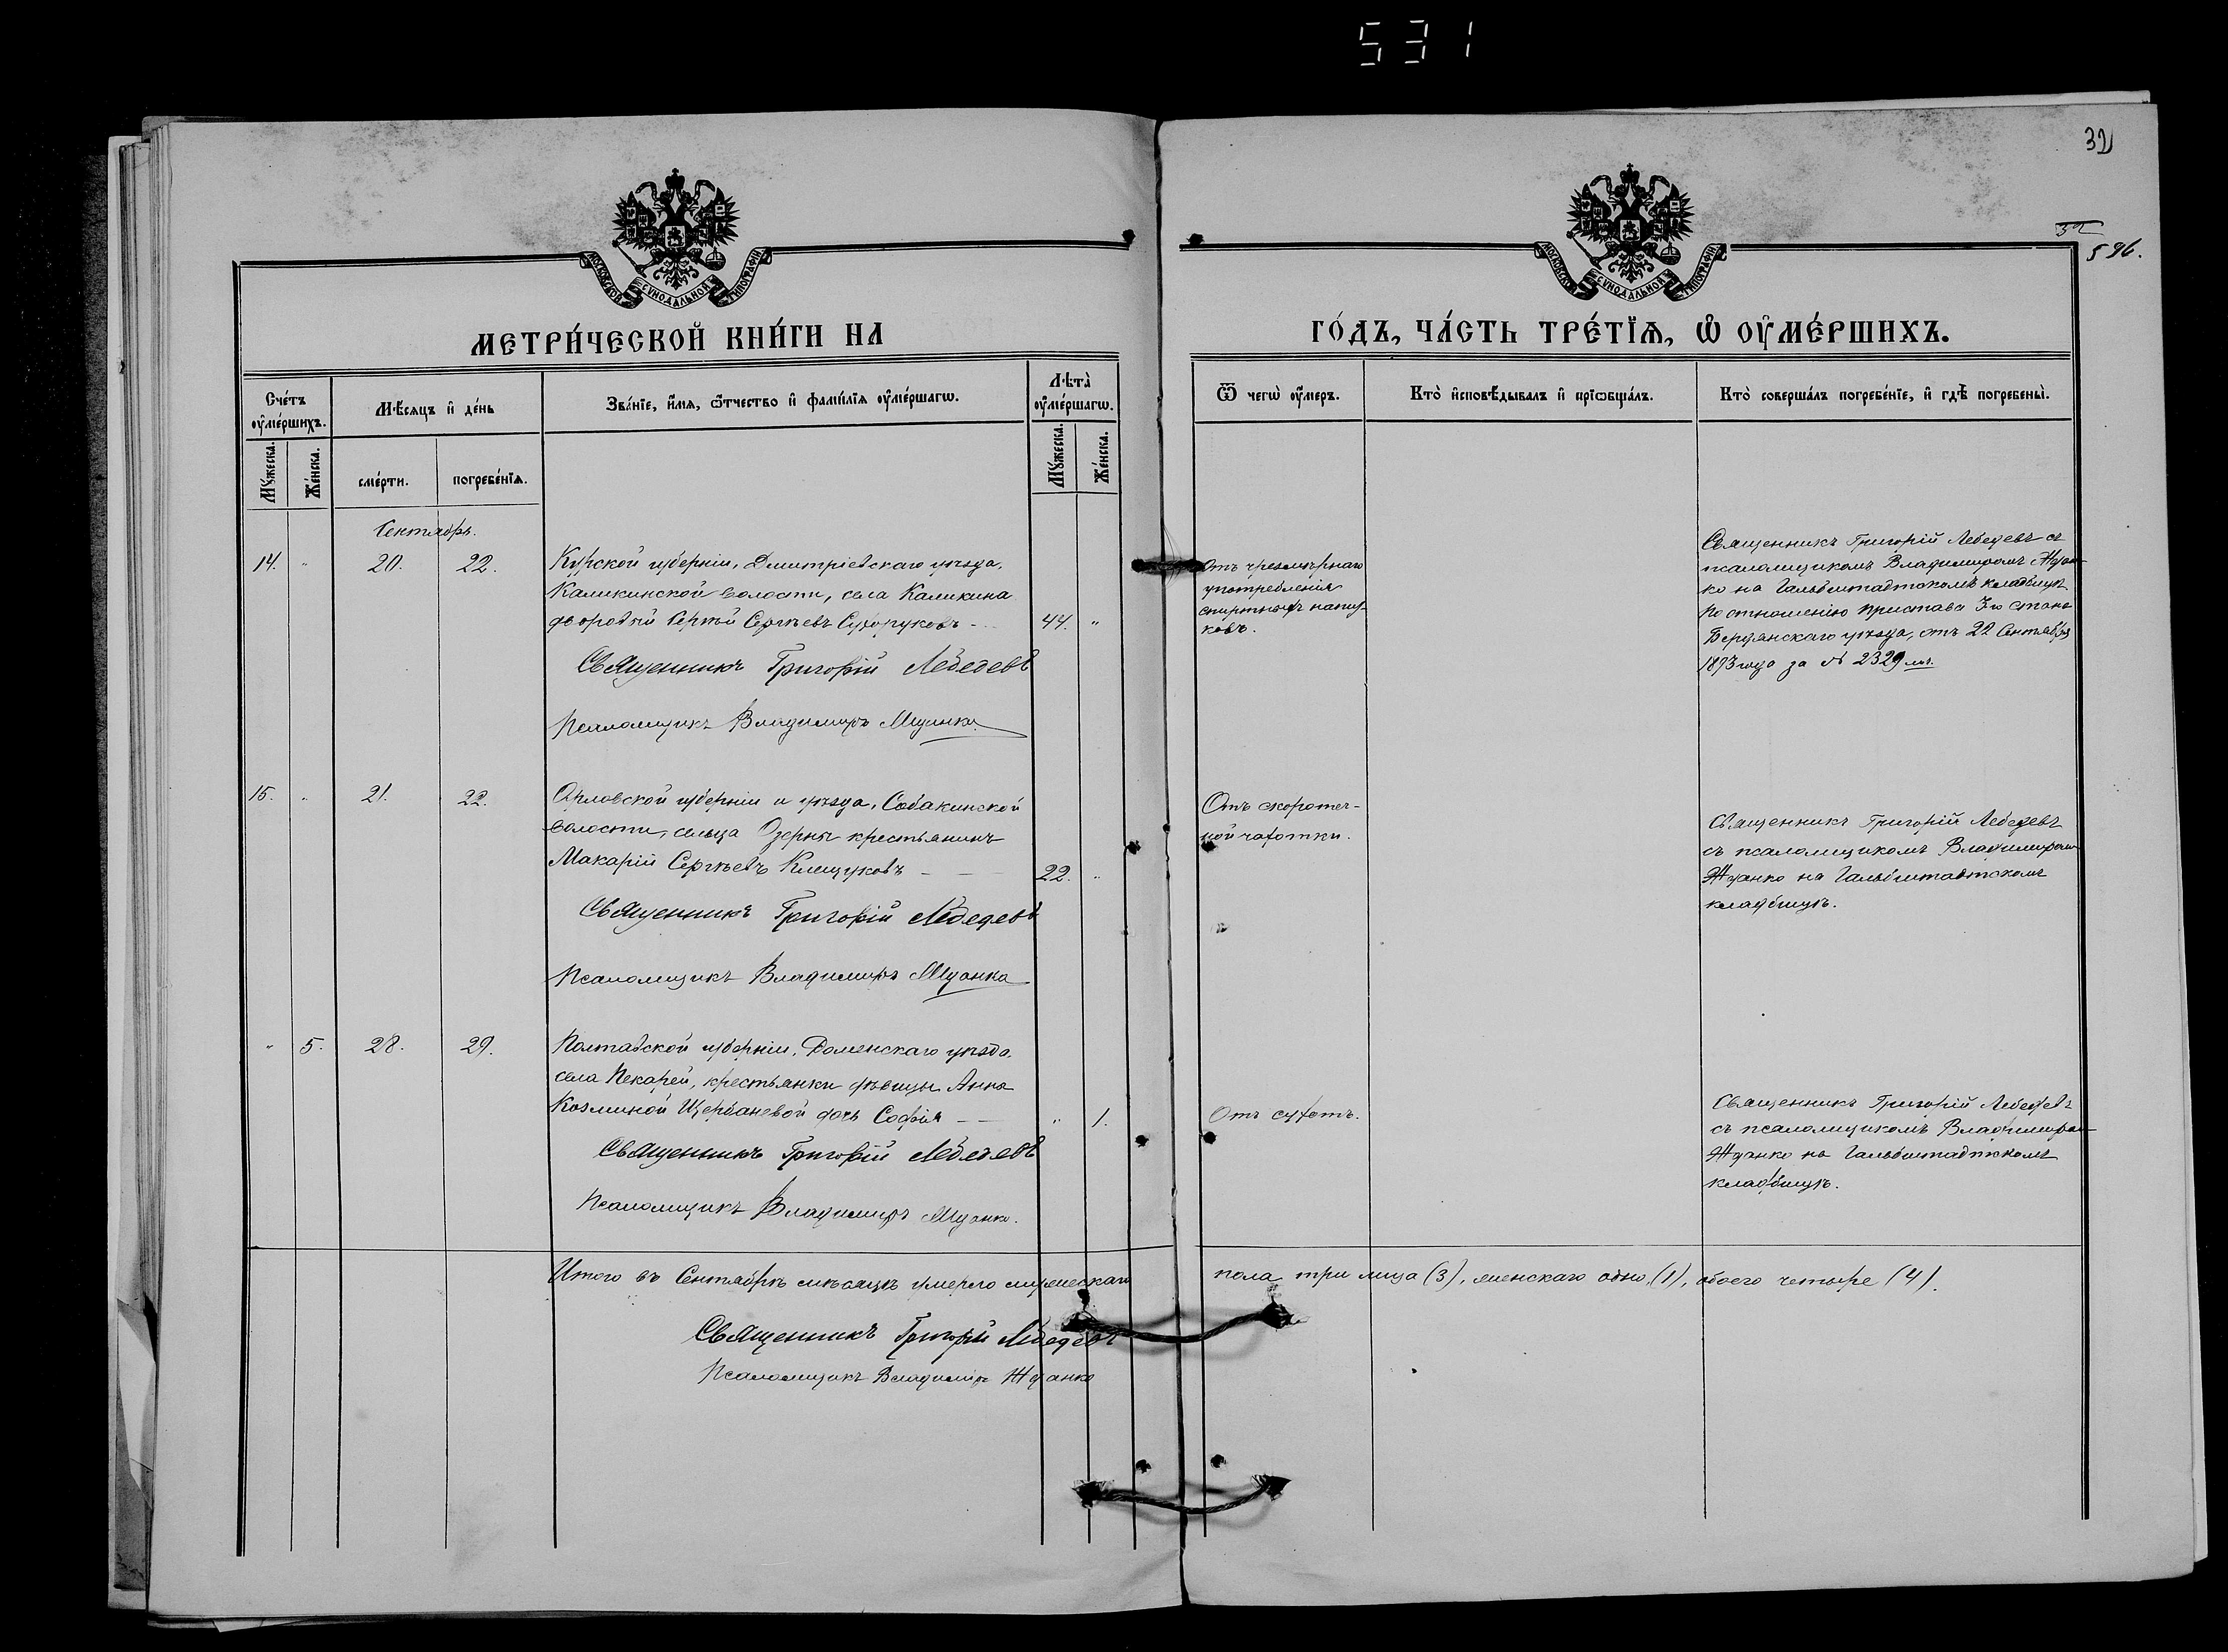 531
32
32
596.
МОСКОВСКОЙ СѴНОДАЛЬНОЙ ТИПОГРАФІИ
МОСКОВСКОЙ СѴНОДАЛЬНОЙ ТИПОГРАФІИ
МЕТРИ́ЧЕСКОЙ КНИ́ГИ НА
ГО́ДЪ, ЧА́СТЬ ТРЕ́ТЇѦ, Ѡ҆ ОУ҆МЕ́РШИХЪ.
Сче́тъ оу҆ме́ршихъ.
Мѣ́сяцъ и҆ де́нь
Зва́нїе, и҆́мя, ѻ҆́тчество и҆ фами́лїя оу҆ме́ршагѡ.
Лѣта̀ оу҆ме́ршагѡ.
Ѿ чегѡ̀ оу҆́меръ.
Кто̀ и҆сповѣ́дывалъ и҆ прїѻбща́лъ.
Кто̀ соверша́лъ погребе́нїе, и҆ гдѣ̀ погребены̀.
Мꙋ́жеска.
Же́нска.
сме́рти.
погребе́нїѧ.
Мꙋ́жеска.
Же́нска.
Сентябрь.
14. " 20. 22. Курской губерніи, Дмитріевскаго уѣзда,
Каликинской волости, села Каликина
дворовый Сергѣй Сергѣевъ Сухоруковъ - 44. "
Священникъ Григорій Лебедевъ
Псаломщикъ Владимиръ Жданко
Отъ чрезмѣрнаго
употребленія
спиртныхъ напит-
ковъ.
Священникъ Григорій Лебедевъ съ
псаломщикомъ Владимиромъ Ждан-
ко на Гальбштадтскомъ кладбищѣ
по отношенію пристава 3го стана
Бердянскаго уѣзда, отъ 22 Сентября
1893 года за № 2329мъ.
15. " 21. 22. Орловской губерніи и уѣзда, Собакинской
волости, сельца Озерны крестьянинъ
Макарій Сергѣевъ Клещуковъ - - 22. "
Священникъ Григорій Лебедевъ
Псаломщикъ Владимиръ Жданко
Отъ скоротеч-
ной чахотки.
Священникъ Григорій Лебедевъ
съ псаломщикомъ Владимиромъ
Жданко на Гальбштадтскомъ
кладбищѣ.
" 5. 28. 29. Полтавской губерніи, Роменскаго уѣзда
села Пекарей, крестьянки дѣвицы Анны
Козминой Щербаневой дочь Софія - - " 1.
Священникъ Григорій Лебедевъ
Псаломщикъ Владимиръ Жданко.
Отъ сухотъ.
Священникъ Григорій Лебедевъ
съ псаломщикомъ Владимиром
Жданко на Гальбштадтскомъ
кладбищѣ.
Итого въ Сентябрѣ мѣсяцѣ умерло мужескаго пола три лица (3), женскаго одно (1), обоего четыре (4).
Священникъ Григорій Лебедевъ
Псаломщикъ Владиміръ Жданко